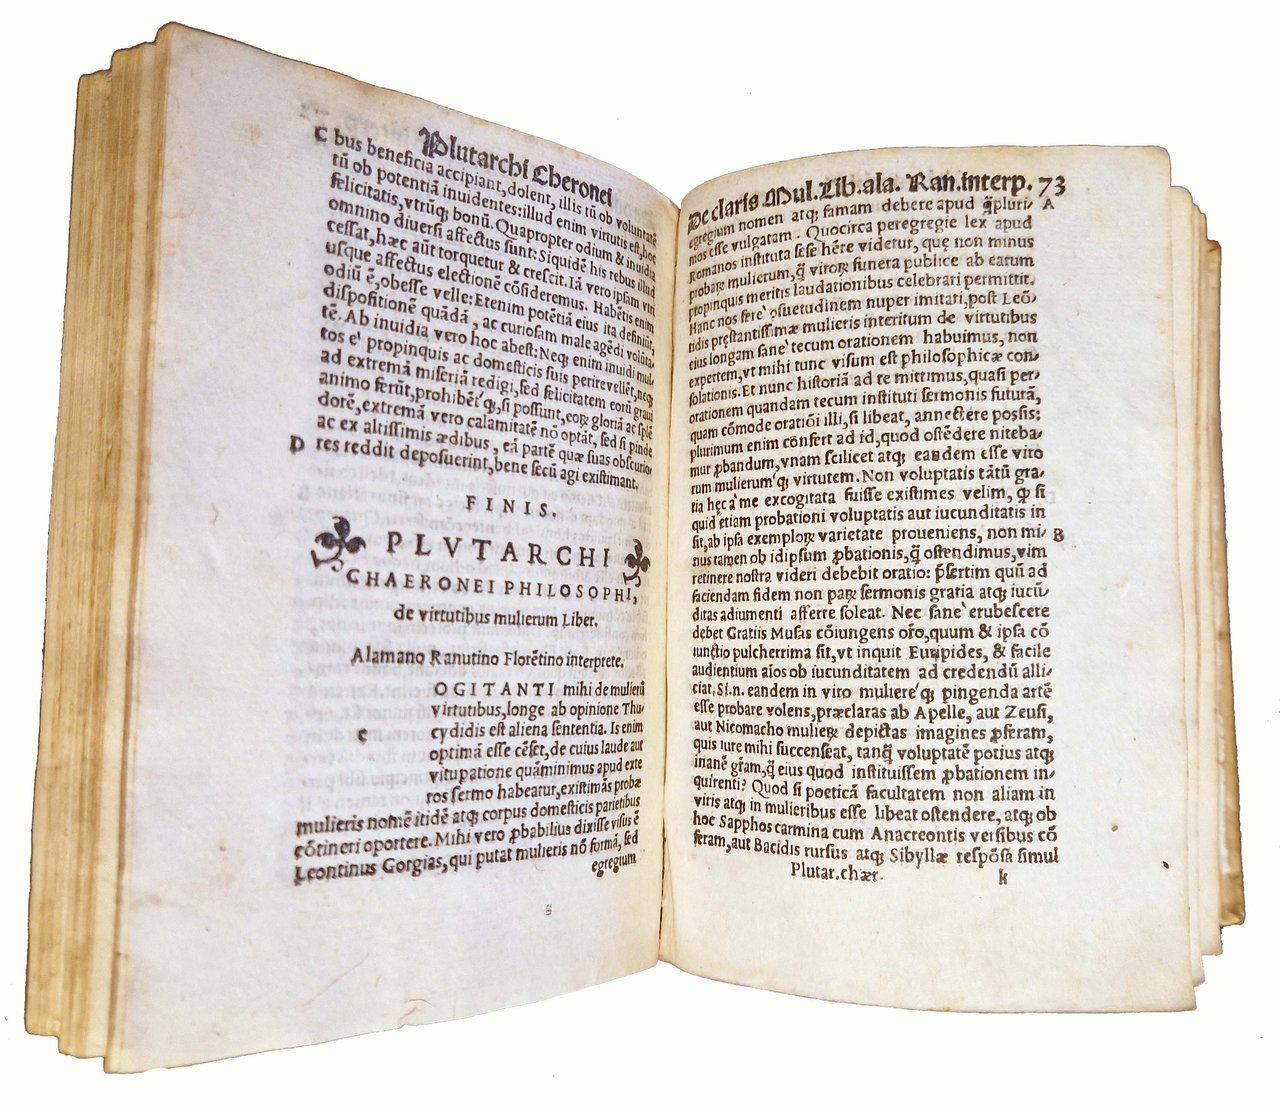 Plutarchi Cheronei
C bus beneficia accipiant, dolent, illis tũ ob voluntatẽ
tũ ob potentiã inuidentes: illud enim virtutis est, hoc
felicitatis, vtrũq; bonũ. Quapropter odium & inuidia
omnino diuersi affectus sunt: Siquidẽ his rebus illud
cessat, hæc aũt torquetur & crescit. Iã vero ipsam vtri
usque affectus electionẽ cõsideremus. Habẽtis enim
odiũ ẽ, obesse velle: Etenim potẽtiã eius ita definiũt,
dispositionẽ quãdã, ac curiosam male agẽdi volũta-
tẽ. Ab inuidia vero hoc abest: Neq; enim inuidi mul-
tos è propinquis ac domesticis suis perire vellẽt, neq;
ad extremã miseriã redigi, sed felicitatem eorũ graui
animo ferũt, prohibẽt q;, si possunt, eoꝝ gloriã ac splẽ
dorẽ, extremã vero calamitatẽ nõ optãt, sed si pinde
ac ex altissimis ædibus, eã partẽ quæ suas obscurio-
D res reddit deposuerint, bene secũ agi existimant.
FINIS.
PLVTARCHI
CHAERONEI PHILOSOPHI,
de virtutibus mulierum Liber.
Alamano Ranutino Florẽtino interprete.
c OGITANTI mihi de mulierũ
virtutibus, longe ab opinione Thu-
cydidis est aliena sententia. Is enim
optimã esse cẽset, de cuius laude aut
vitupatione quãminimus apud exte
ros sermo habeatur, existimãs probæ
mulieris nomẽ itidẽ atq; corpus domesticis parietibus
cõtineri oportere. Mihi vero ꝓbabilius dixisse visus ẽ
Leontinus Gorgias, qui putat mulieris nõ formã, sed
egregium
De claris Mul. Lib. ala. Ran. interp. 73
egregium nomen atq; famam debere apud q̃pluri- A
mos esse vulgatam. Quocirca peregregie lex apud
Romanos instituta sese hẽre videtur, quę non minus
probaꝝ mulierum, q̃ viroꝝ funera publice ab earum
propinquis meritis laudationibus celebrari permittit.
Hanc nos ferè ꝯsuetudinem nuper imitati, post Leõ-
tidis pręstantissimæ mulieris interitum de virtutibus
eius longam sanè tecum orationem habuimus, non
expertem, vt mihi tunc visum est philosophicæ con-
solationis. Et nunc historiã ad te mittimus, quasi per-
orationem quandam tecum instituti sermonis futurã,
quam cõmode oratiõi illi, si libeat, annectere possis:
plurimum enim confert ad id, quod ostẽdere niteba-
mur ꝓbandum, vnam scilicet atq; eandem esse viro
rum mulierum q; virtutem. Non voluptatis tãtũ gra-
tia hęc à me excogitata fuisse existimes velim, q̃ si
quid etiam probationi voluptatis aut iucunditatis in
sit, ab ipsa exemploꝝ varietate proueniens, non mi- B
nus tamen ob idipsum ꝓbationis, q̃ ostendimus, vim
retinere nostra videri debebit oratio: p̃sertim quũ ad
faciendam fidem non paꝝ sermonis gratia atq; iucũ-
ditas adiumenti afferre soleat. Nec sanè erubescere
debet Gratiis Musas cõiungens orõ, quum & ipsa cõ
iunctio pulcherrima sit, vt inquit Euripides, & facile
audientium aĩos ob iucunditatem ad credendũ alli-
ciat. Si. n. eandem in viro muliere q; pingenda artẽ
esse probare volens, præclaras ab Apelle, aut Zeusi,
aut Nicomacho mulieꝝ depictas imagines ꝓferam,
quis iure mihi succenseat, tanq̃ voluptatẽ potius atq;
inanẽ grãm, q̃ eius quod instituissem ꝓbationem in-
quirenti? Quod si poeticã facultatem non aliam in
viris atq; in mulieribus esse libeat ostendere, atq; ob
hoc Sapphos carmina cum Anacreontis versibus cõ
feram, aut Bacidis rursus atq; Sibyllæ respõsa simul
Plutar. chær. k